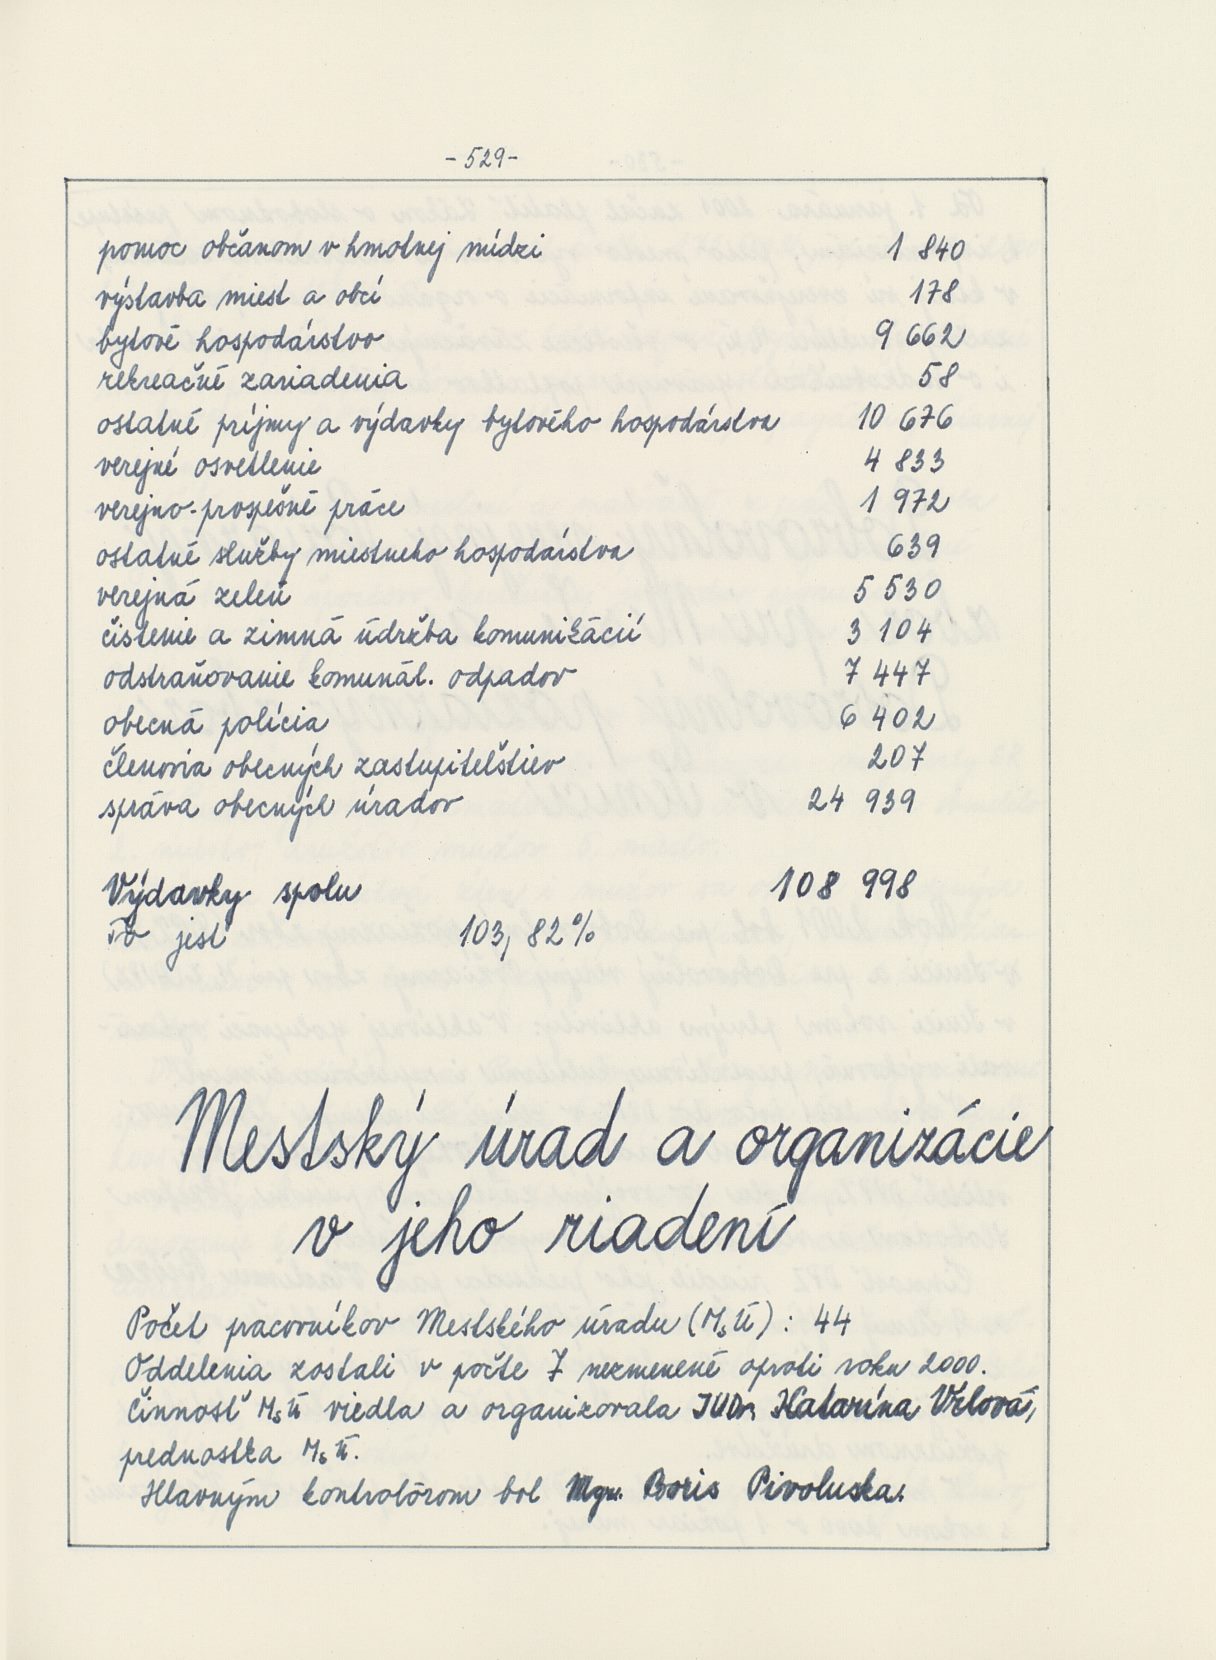 -529-
pomoc občanom v hmotnej núdzi 1 840
výstavba miest a obcí 178
bytové hospodárstvo 9 662
rekreačné zariadenia 58
ostatné príjmy a výdavky bytového hospodárstva 10 676
verejné osvetlenie 4 833
verejno-prospešné práce 1 972
ostatné služby miestneho hospodárstva 639
verejná zeleň 5 530
čistenie a zimná údržba komunikácií 3 104
odstraňovanie komunál. odpadov 7 447
obecná polícia 6 402
členovia obecných zastupiteľstiev 207
správa obecných úradov 24 939
Výdavky spolu 108 998
To jest 103,82%
Mestský úrad a organizácie
v jeho riadení
Počet pracovníkov Mestského úradu (MsÚ) : 44
Oddelenia zostali v počte 7 nezmenené oproti roku 2000.
Činnosť MsÚ viedla a organizovala JUDr. Katarína Vrlová,
prednostka MsÚ.
Hlavným kontrolórom bol Mgr. Boris Pivoluska.